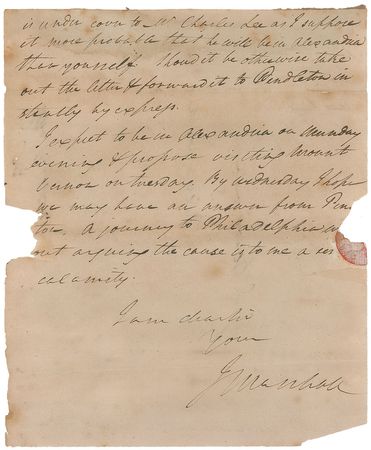 is under cover to Mr Charles Lee as I suppose
it more probable that he will be in Alexandria
than yourself. Should it be otherwise take
out the letter & forward it to Pendleton in
stantly by express.
I expect to be in Alexandria on Monday
evening & propose visiting Mount
Vernon on tuesday. By wednesday I hope
we may have an answer from Pen
ton. A journey to Philadelphia w
out arguing the cause is to me a
calamity.
I am dear Sir
Your
J Marshall